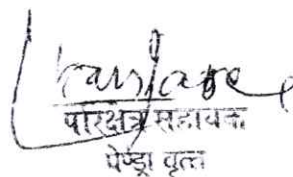 परिक्षेत्र सहायक
पेण्ड्रा वृत्त